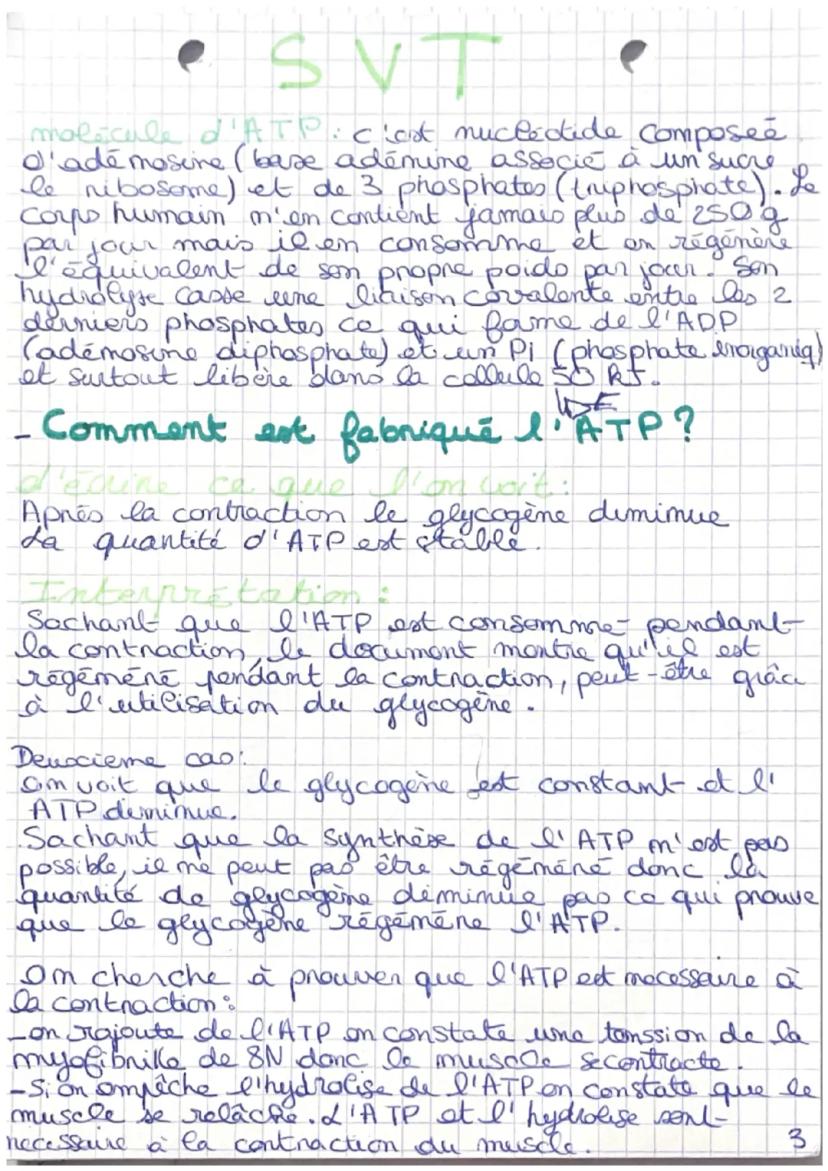 SVT
molécule d'ATP : c'est nucléotide composeé
d'adénosine (base adénine associé à un sucre
le ribosome) et de 3 phosphates (triphosphate). Le
corps humain n'en contient jamais plus de 250g
par jour mais il en consomme et en régénère
l'équivalent de son propre poids par jour. Son
hydrolyse casse une liaison covalente entre les 2
derniers phosphates ce qui forme de l'ADP
(adénosine diphosphate) et un Pi (phosphate inorganiq)
et surtout libère dans la cellule 50 KJ.
↳E
- Comment est fabriqué l'ATP ?
d'écrire ce que l'on voit :
Après la contraction le glycogène diminue
La quantité d'ATP est stable.
Interprétation :
Sachant que l'ATP est consommé pendant
la contraction, le document montre qu'il est
régénéré pendant la contraction, peut-être grâce
à l'utilisation du glycogène.
Deuxieme cas :
on voit que le glycogène est constant et l'
ATP diminue.
Sachant que la synthèse de l'ATP n'est pas
possible, il ne peut pas être régénéré donc la
quantité de glycogène diminue pas ce qui prouve
que le glycogène régénère l'ATP.
On cherche à prouver que l'ATP est necessaire à
la contraction :
- on rajoute de l'ATP on constate une tenssion de la
myofibrille de 8N donc le muscle se contracte.
- Si on empêche l'hydrolise de l'ATP on constate que le
muscle se relâche. L'ATP et l'hydrolise sont
necessaire à la contraction du muscle.
3